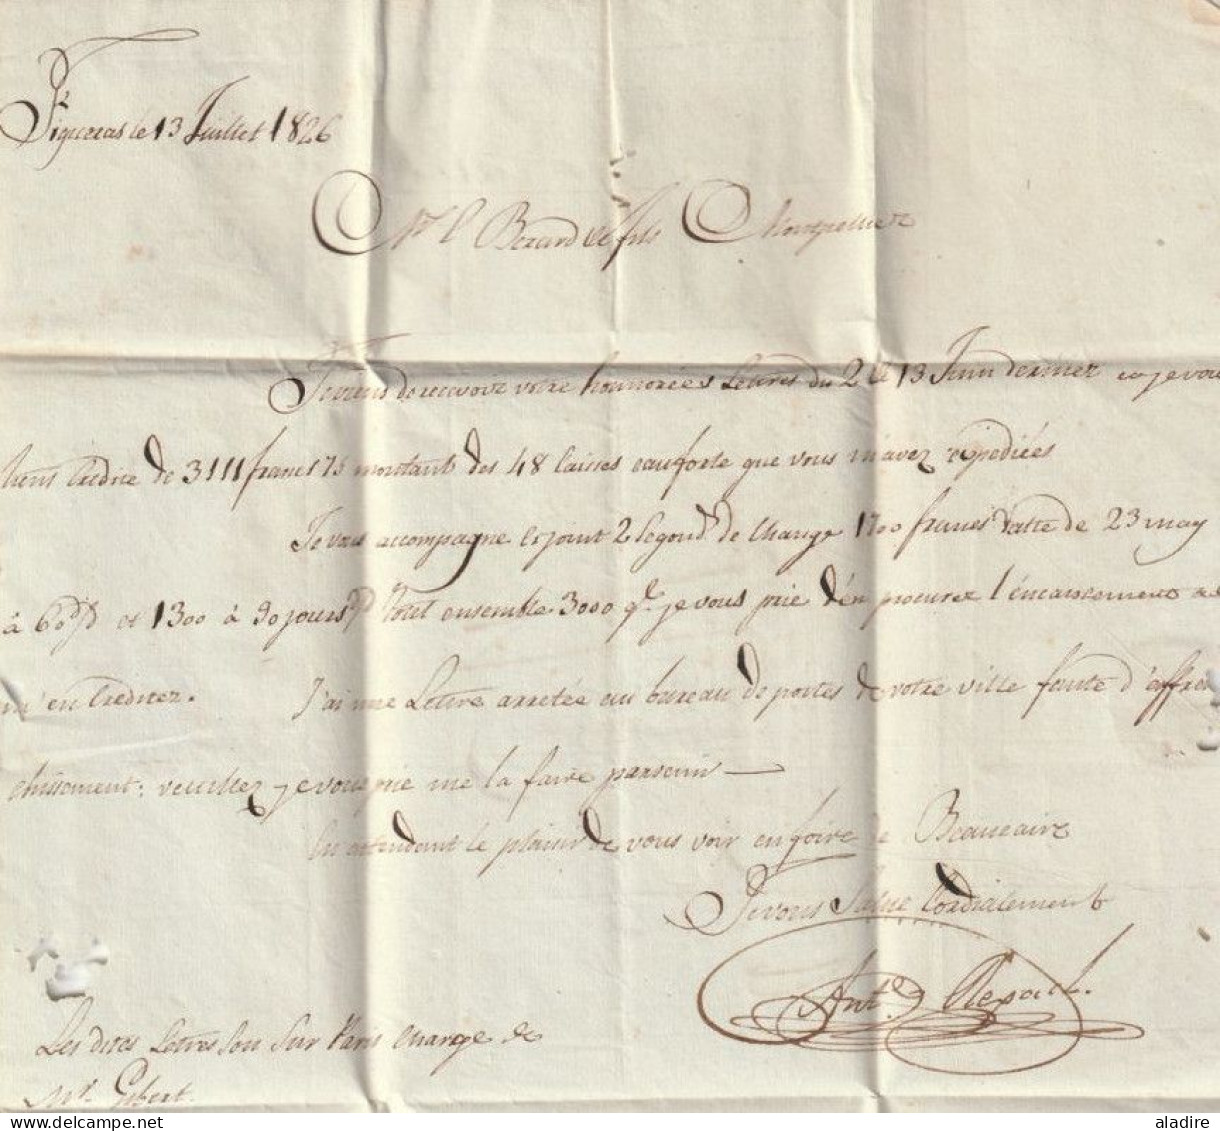 Figueras le 13 Juillet 1826
Mrs Berard & fils Montpellier
Je viens de recevoir votre honnorées Lettres du 2 & 13 Juin dernier je vous
tiens Credité de 3111 francs 75 montant des 48 Caisses eauforte que vous m'avez expediées
Je vous accompagne ci joint 2 Segonds de Change 1700 francs datte de 23 may
à 60 d/d et 1300 à 90 jours Tout ensemble 3000 qe je vous prie d'en procurer l'encaissement
m'en Crediter. J'ai une Lettre arretée au bureau de postes de votre ville faute d'affran
chissement: veuillez je vous prie me la faire parvenir —
En attendant le plaisir de vous voir en foire de Beaucaire
Je vous Salue Cordialement
Les dites Lettres Son Sur Paris Charge de
Mr. Gibert.
www.delcampe.net
aladire